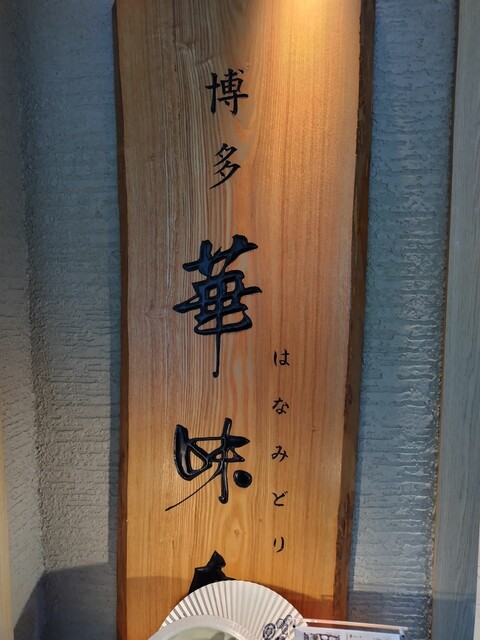 博多
華味
はなみどり